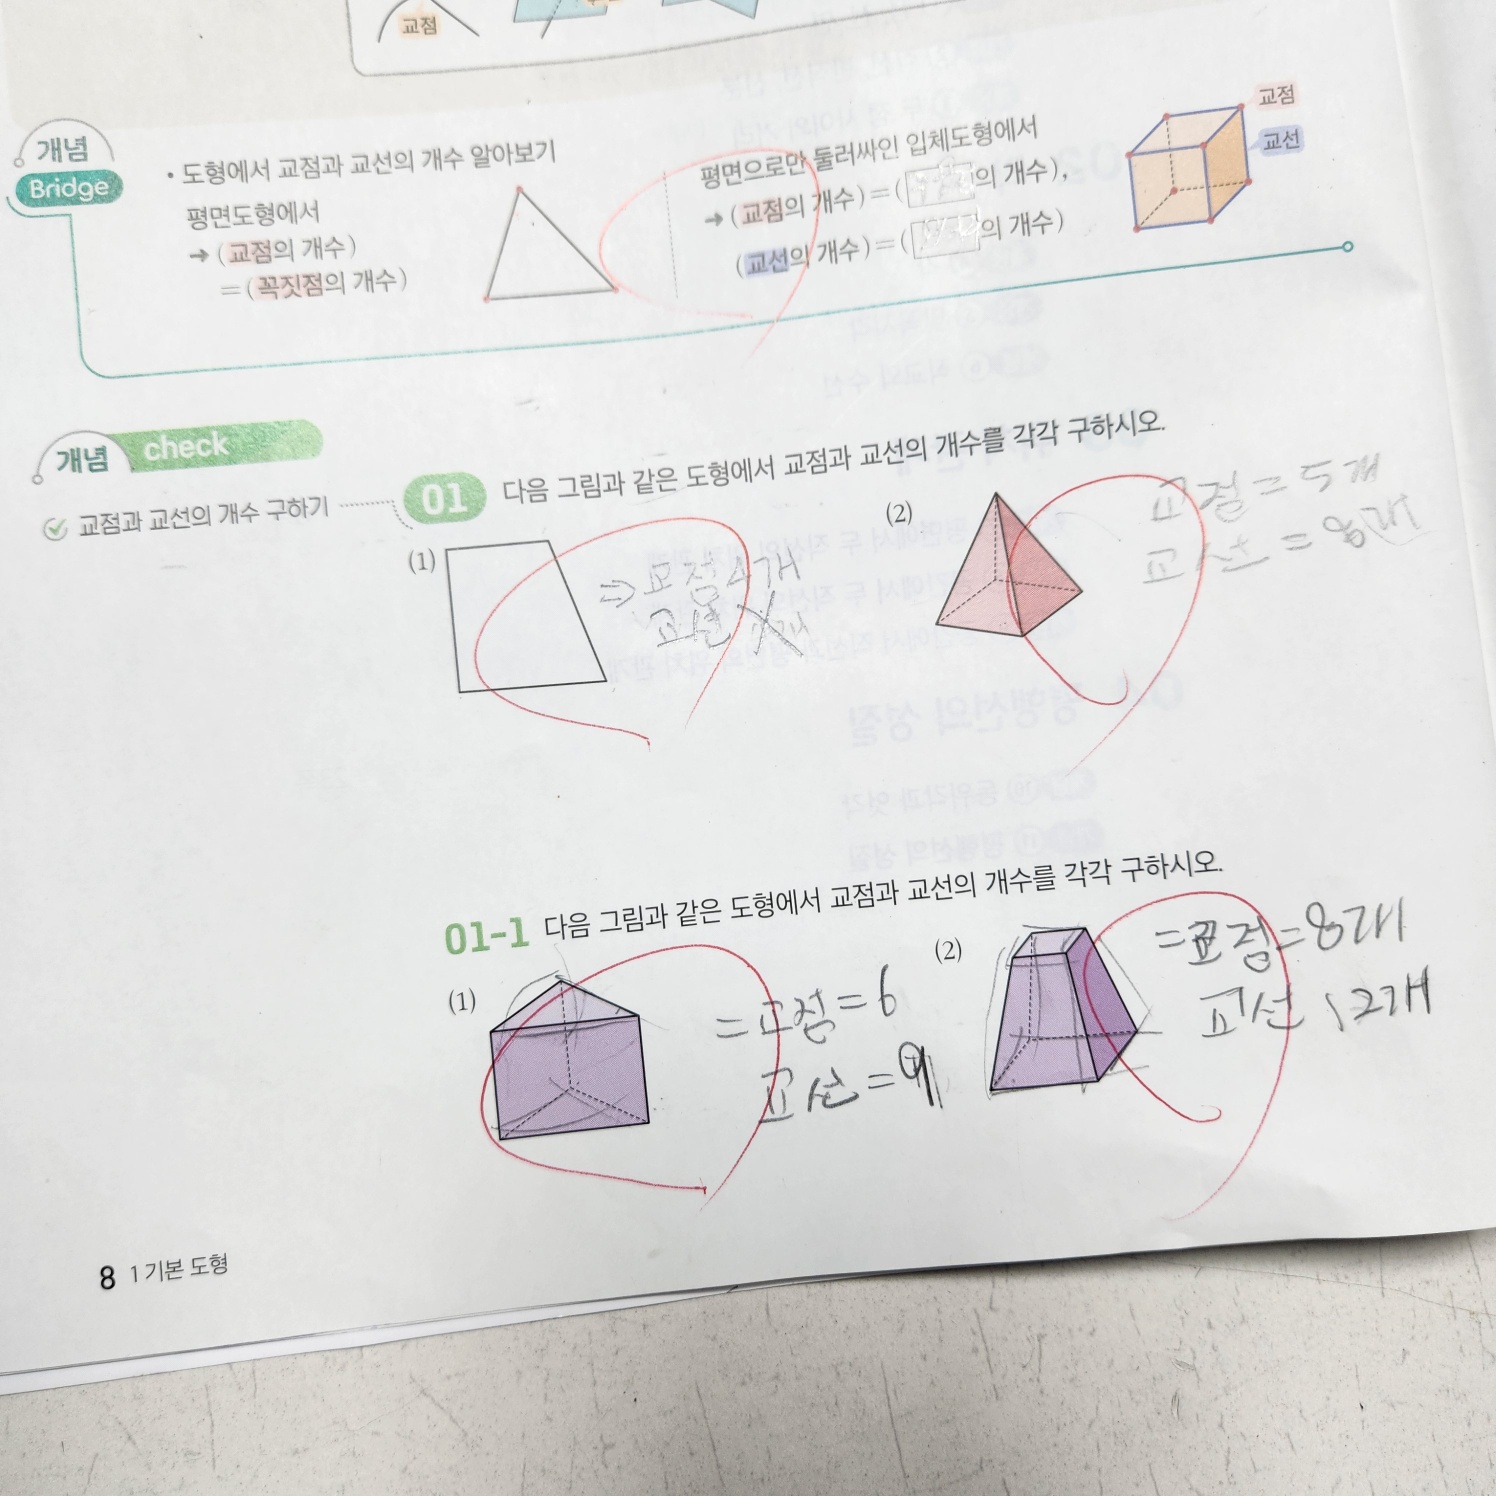 교점
개념
Bridge
• 도형에서 교점과 교선의 개수 알아보기
평면도형에서
→ (교점의 개수)
=(꼭짓점의 개수)
평면으로만 둘러싸인 입체도형에서
→ (교점의 개수)=( 의 개수),
(교선의 개수)=( 의 개수)
교점
교선
개념 check
교점과 교선의 개수 구하기
01 다음 그림과 같은 도형에서 교점과 교선의 개수를 각각 구하시오.
(1)
⇒ 교점 4개
교선
(2)
교점 = 5개
교선 = 8개
01-1 다음 그림과 같은 도형에서 교점과 교선의 개수를 각각 구하시오.
(1)
= 교점 = 6
교선 = 9
(2)
= 교점 = 8개
교선 12개
8 1 기본 도형